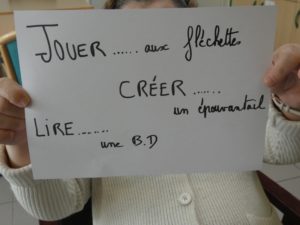 JOUER ...... aux fléchettes
CRÉER .......
un épouvantail
LIRE .......
une B.D